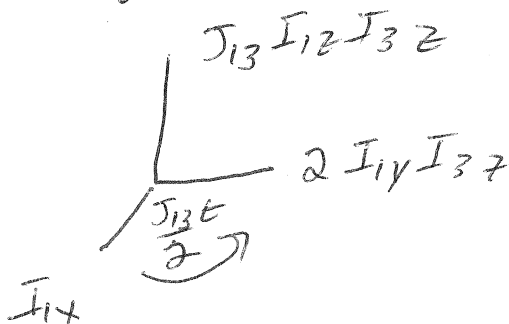 J₁₃ I₁z I₃z
2 I₁y I₃z
J₁₃t
2
I₁x